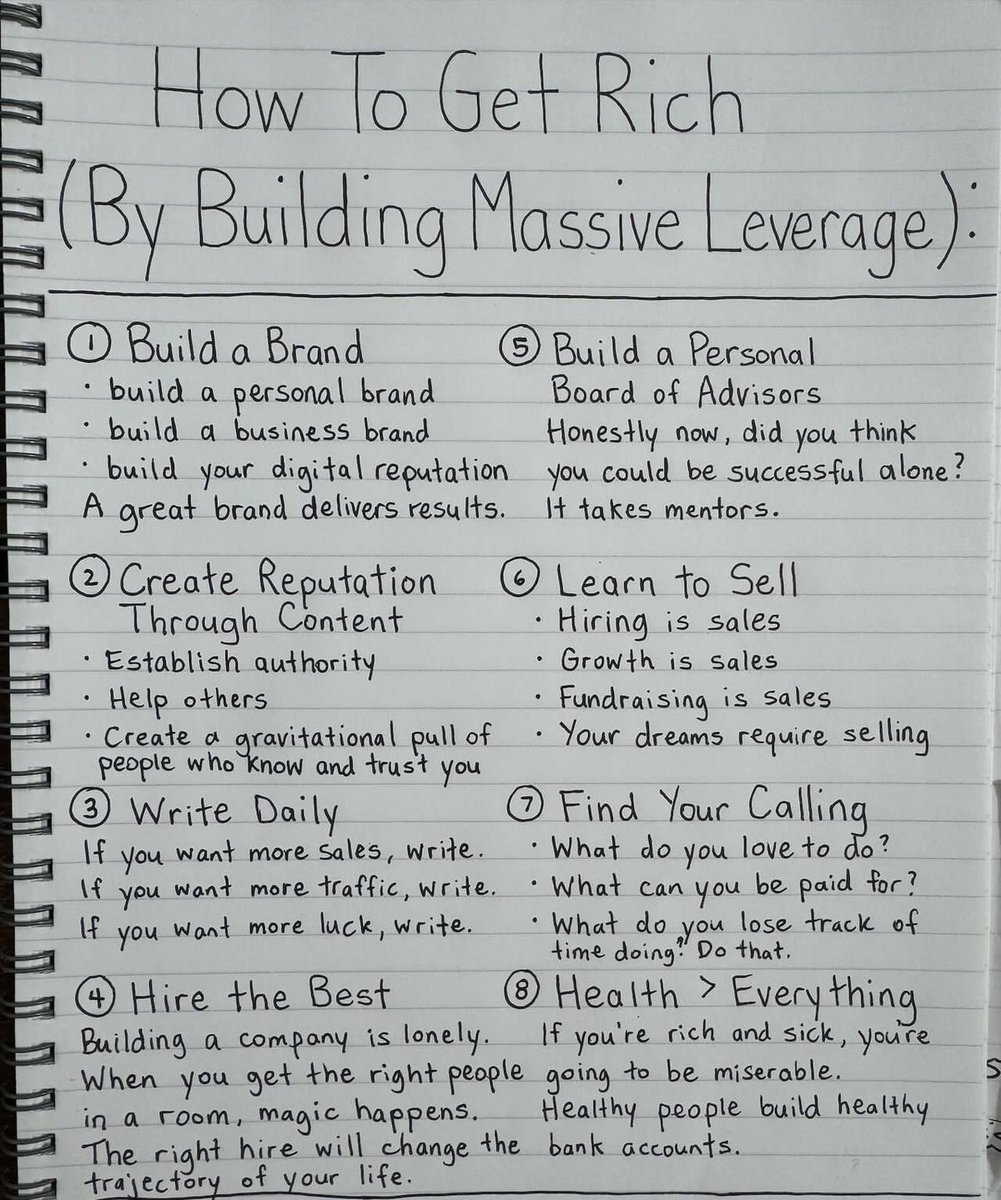 How To Get Rich
(By Building Massive Leverage):
① Build a Brand
· build a personal brand
· build a business brand
· build your digital reputation
A great brand delivers results.
② Create Reputation
Through Content
· Establish authority
· Help others
· Create a gravitational pull of
people who know and trust you
③ Write Daily
If you want more sales, write.
If you want more traffic, write.
If you want more luck, write.
④ Hire the Best
Building a company is lonely.
When you get the right people
in a room, magic happens.
The right hire will change the
trajectory of your life.
⑤ Build a Personal
Board of Advisors
Honestly now, did you think
you could be successful alone?
It takes mentors.
⑥ Learn to Sell
· Hiring is sales
· Growth is sales
· Fundraising is sales
· Your dreams require selling
⑦ Find Your Calling
· What do you love to do?
· What can you be paid for?
· What do you lose track of
time doing? Do that.
⑧ Health > Everything
If you're rich and sick, you're
going to be miserable.
Healthy people build healthy
bank accounts.